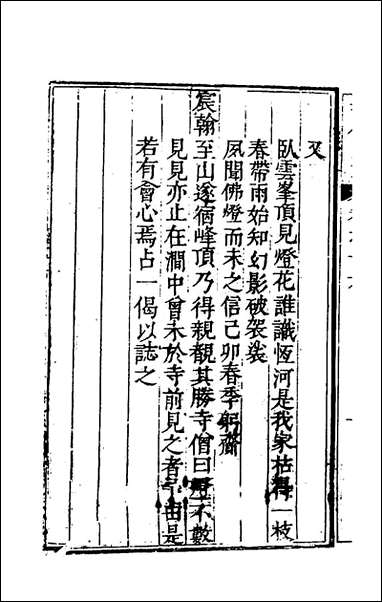 又
臥雲峯頂見燈花誰識恆河是我家拈得一枝
春帶雨始知幻影破袈裟
夙聞佛燈而未之信己卯春季躬齋
宸翰至山遂宿峰頂乃得親觀其勝寺僧曰燈不數
見見亦止在澗中曾未於寺前見之者由是
若有會心焉占一偈以誌之